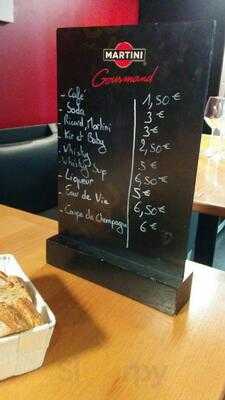 MARTINI
Gourmand
- Café 1,50 €
- Soda 3 €
- Ricard, Martini 3 €
- Kir et Baby 2,50 €
- Whisky 5 €
- Whisky Sup 6,50 €
- Liqueur 5 €
- Eau de Vie 6,50 €
- Coupe de Champagne 6 €